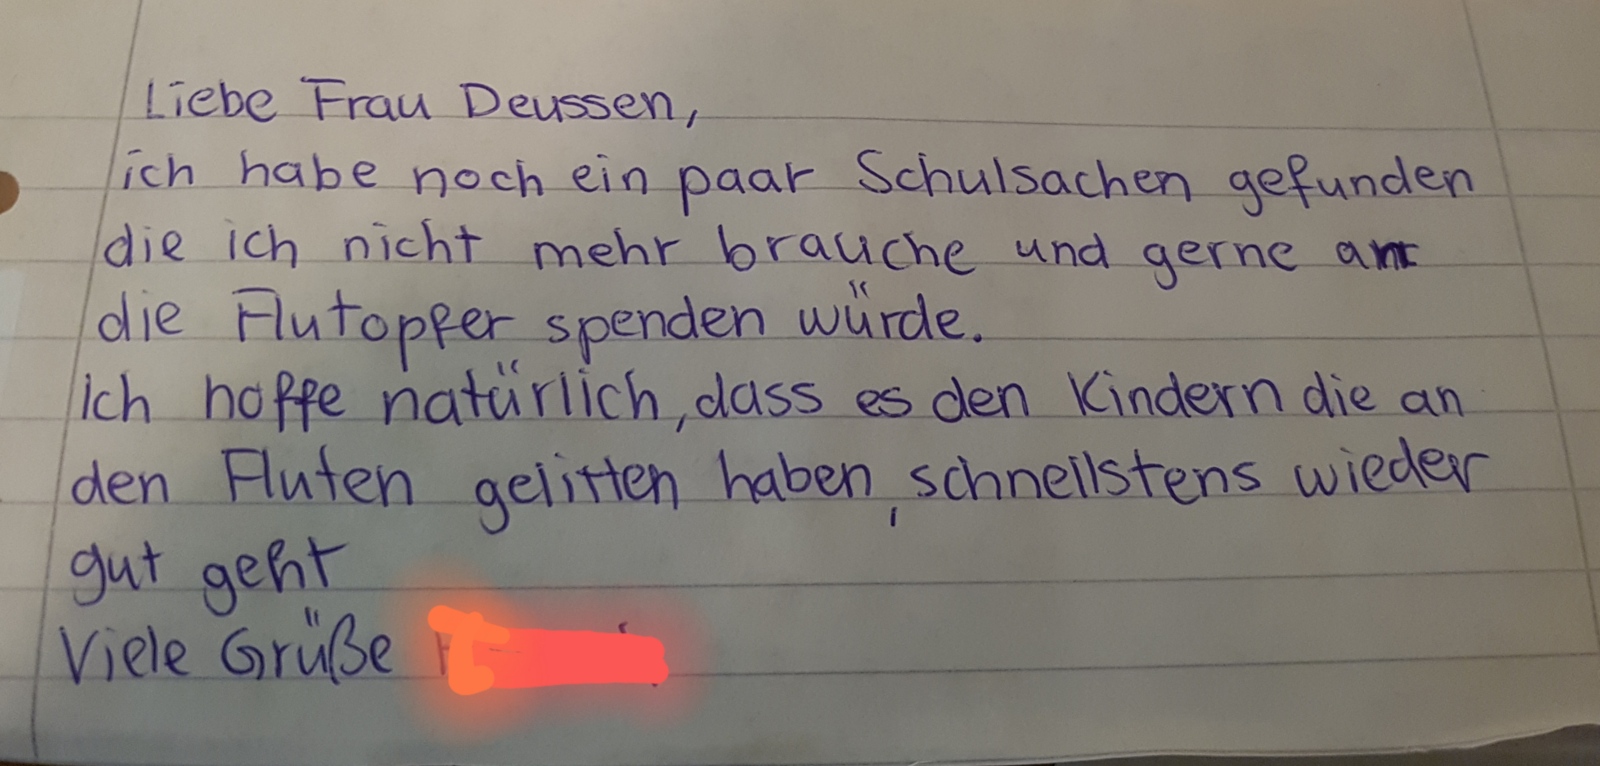 Liebe Frau Deussen,
ich habe noch ein paar Schulsachen gefunden
die ich nicht mehr brauche und gerne an
die Flutopfer spenden würde.
Ich hoffe natürlich, dass es den Kindern die an
den Fluten gelitten haben, schnellstens wieder
gut geht
Viele Grüße